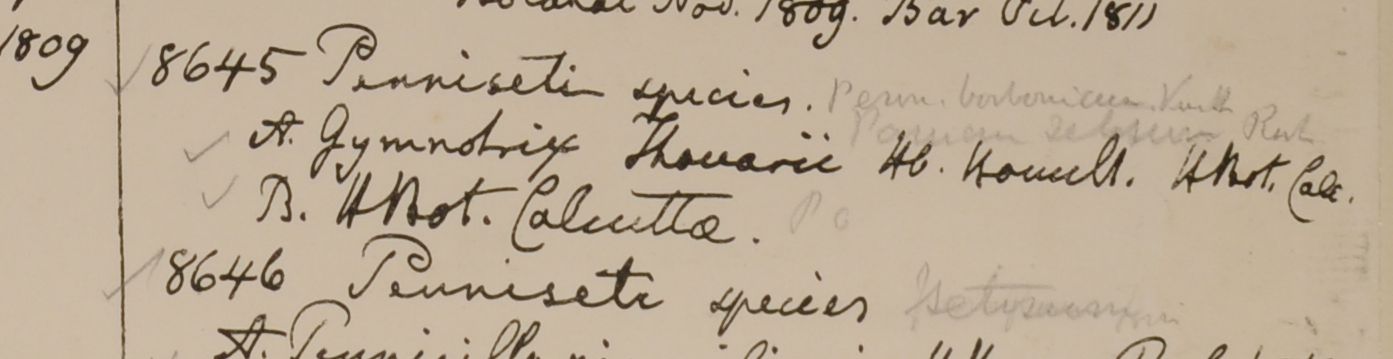 Nov. 1809. Bar Oct. 1811
1809
8645 Penniseti species. Penn. borbonicum Kunth
A. Gymnotrix Thouarii Hb. Hamilt. HBot. Calc.
B. HBot. Calcutta.
8646 Penniseti species
A.